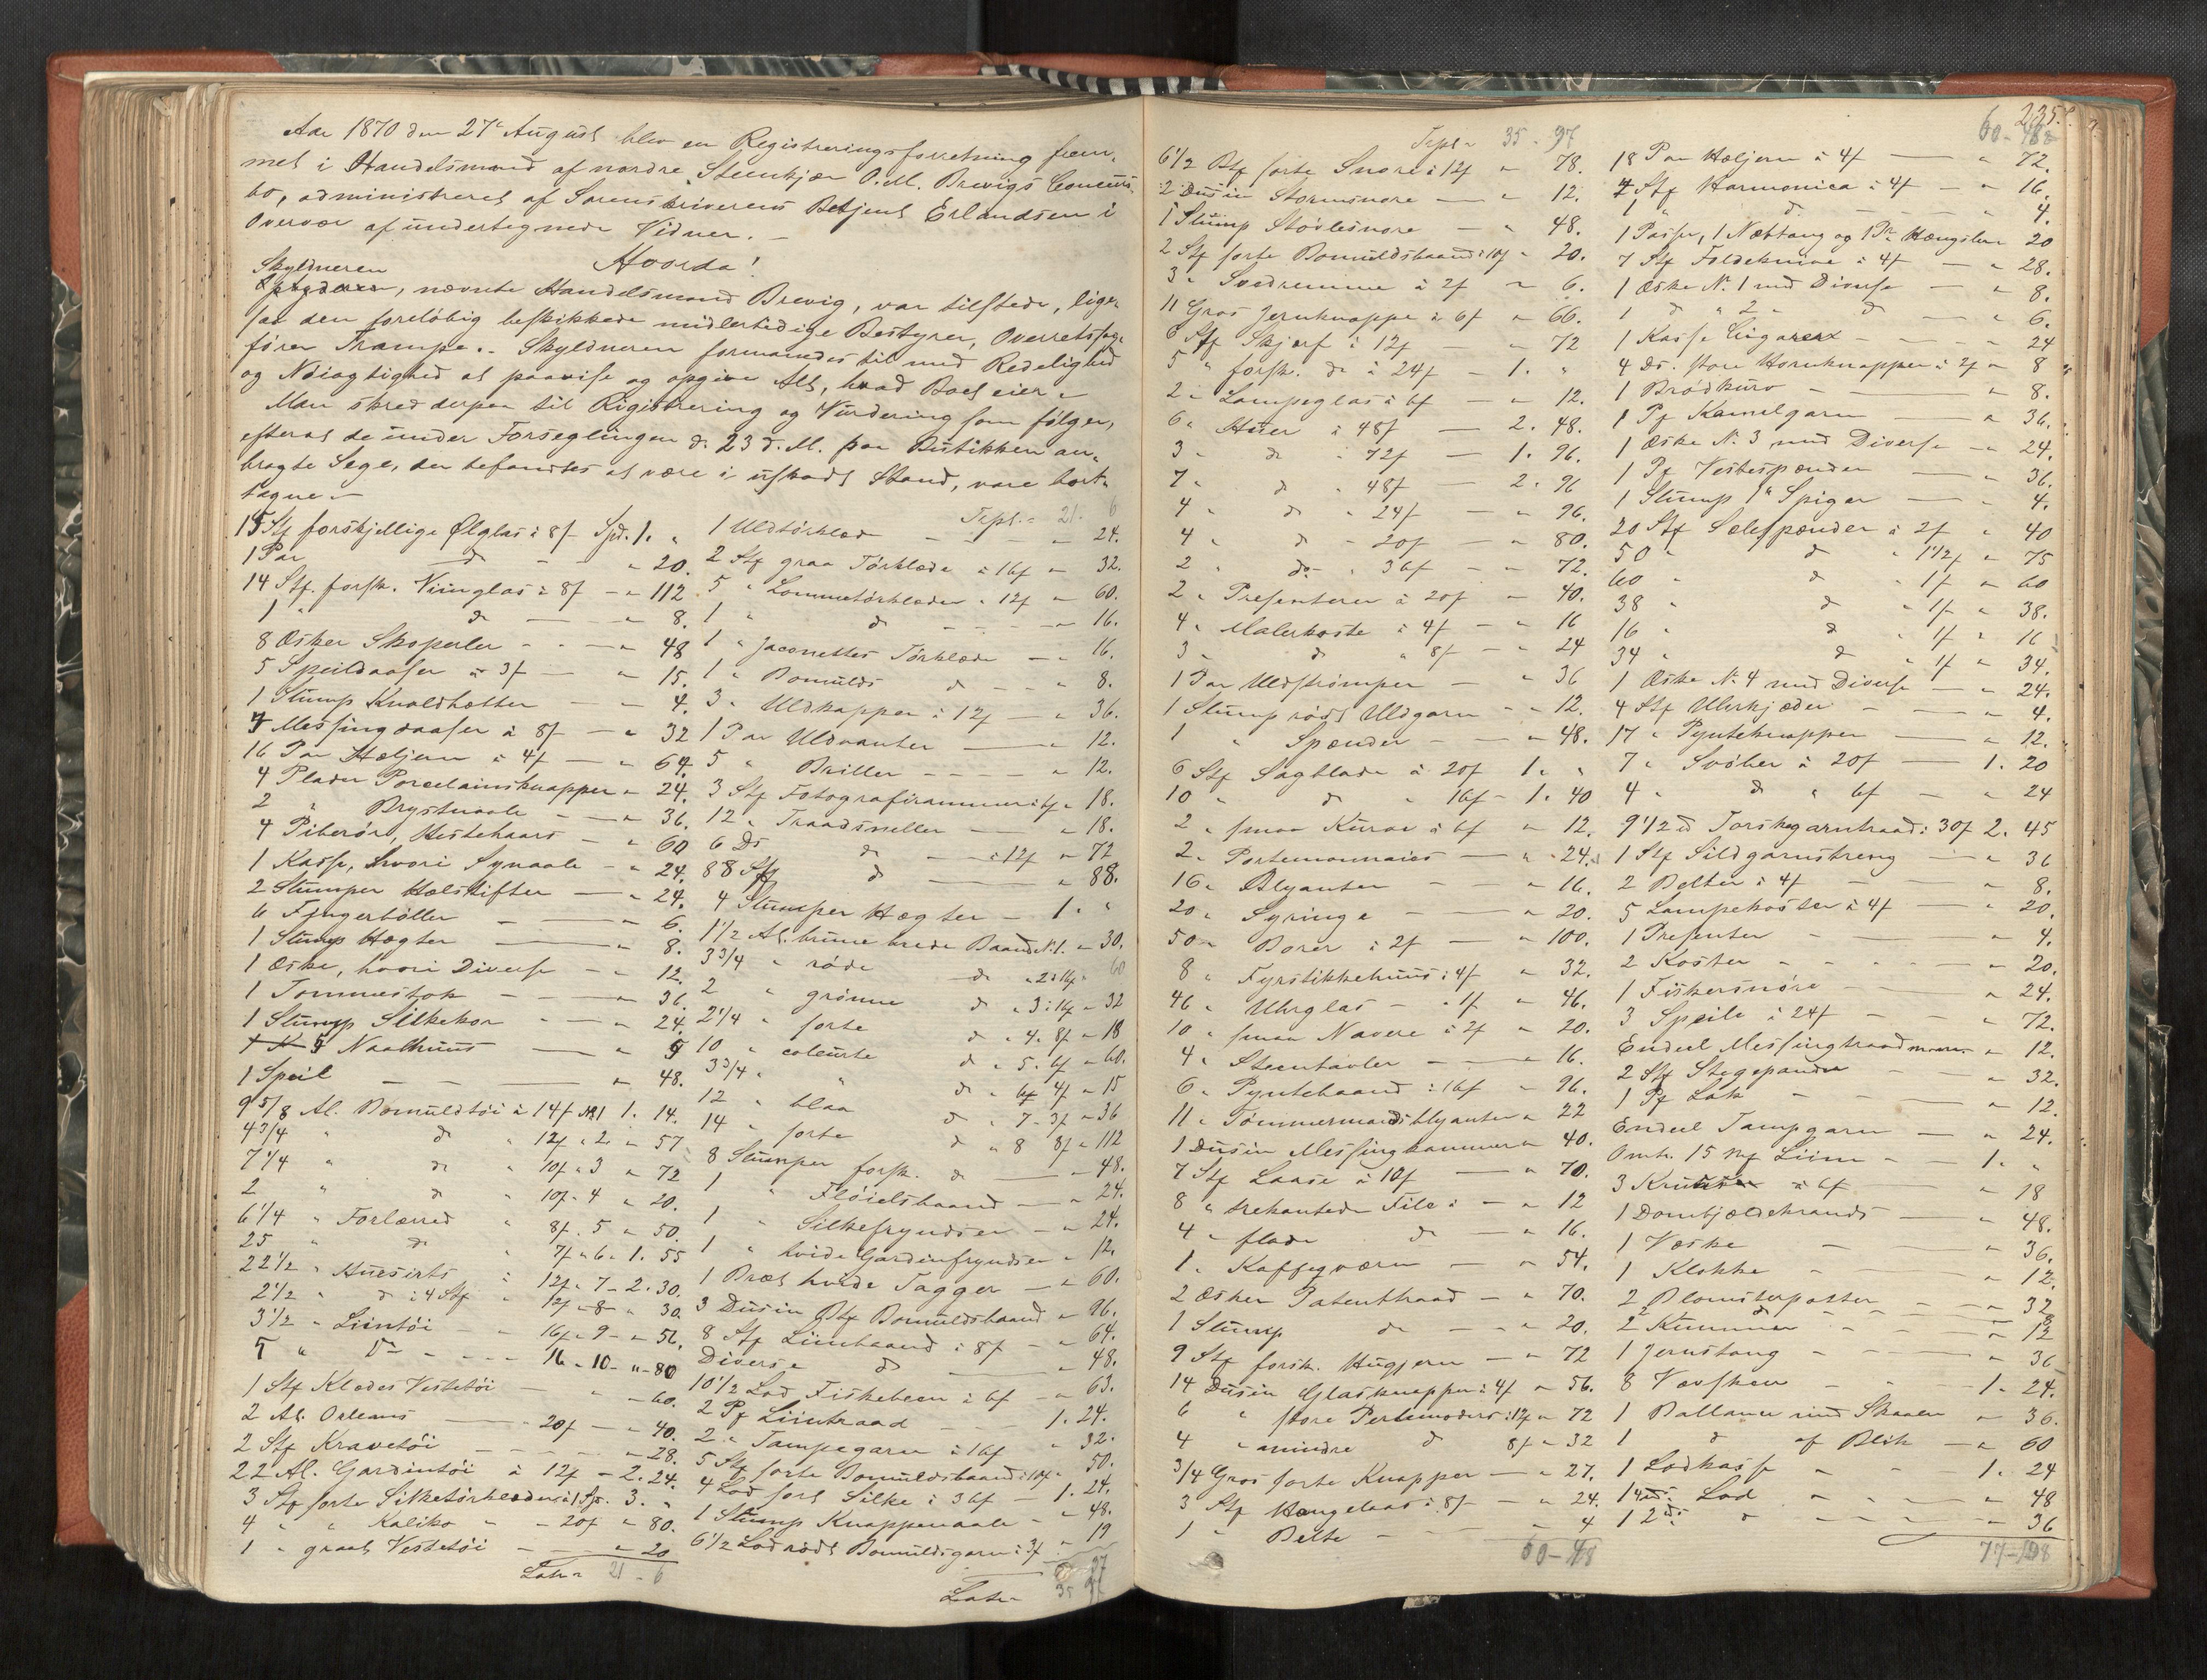 Aar 1870 den 27de August blev en Registreringsforretning frem-
met i Handelsmand af nordre Steenkjær O. M. Brevigs Concurs-
bo, administreret af Sorenskriverens Betjent Erlandsen i
Overvær af undertegnede Vidner. –
Hvorda!
Skyldneren
, nævnte Handelsmand Brevig, var tilstede, lige-
saa den foreløbig beskikkede midlertidige Bestyrer, Overretssag-
fører Trampe. – Skyldneren formanedes til med Redelighed
og Nøiagtighed at paavise og opgive Alt, hvad Boet eier. –
Man skred derpaa til Rigistrering og Vurdering som følger,
efterat de under Forseglingen d. 23 d. M. paa Butikken an-
bragte Segl, der befandtes at være i uskadt Stand, vare bort-
tagne. –
15 Stk forskjellige Ølglas à 8f Spd. 1. "
1 Par d – " 20.
14 Stk. forsk. Viinglas à 8f – " 112
1 " d – " 8.
8 Æsker Skoperler – " 48
5 Speildaaser à 3f – " 15.
1 Stump Knoldhætter – " 4.
4 Messingdaaser à 8f – " 32
16 Par Hæljern à 4f – " 64.
4 Plader Porcelainsknapper " 24.
2 " Brystnaale – " 36.
4 Piberør, Hestehaars – " 60
1 Kasse, hvori Synaale – " 24.
2 Stumper Hælstifter – " 24.
6 Fingerbøller – " 6.
1 Stump Hægter – " 8.
1 Æske, hvori Diverse – " 12.
1 Tommestok – " 36.
1 Stump Silkekor – " 24.
Naalhuus – " 9
1 Speil – " 48.
9 5/8 Al. Bomuldtøi à 14f N. 1 1. 14.
4 3/4 " d " 12f " 2 " 57
7 1/4 " d " 10f " 3 " 72
2 " d " 10f " 4 " 20.
6 1/4 " Forlærred " 8f " 5 " 50.
25 " d " 7f " 6 " 1. 55
22 1/2 " Huesirts " 12f " 7 – 2. 30.
2 1/2 " d i 4 Stk " 12f " 8 – " 30.
3 1/2 " Liintøi " 16f " 9 – " 56.
5 " Do – 16 – 10 – " – 80
1 Stk Klædes Vestetøi – " 60.
2 Al. Orleans – 20f – " 40.
2 Stk Kravetøi – " 28.
22 Al. Gardintøi à 12f – 2. 24.
3 Stk sorte Silketørklæder à 1 Sp. 3. "
4 " " Kaliko " – 20f " 80.
1 " graat Vestetøi – " 20
Lateris 21 – 6
Trspt. 21. 6
1 Uldtørklæde – 24.
2 Stk graa Tørklæde à 16f " 32.
5 " Lommetørklæder " 12f " 60.
1 " d – " 16.
1 " Jaconettes Tørklæde – " 16.
1 " Bomulds d – " 8.
3 " Uldkapper à 12f " 36.
1 Par Uldvanter – " 12.
5 " Briller – " 12.
3 Stk Fotografirammer à 6f " 18.
12 " Traadsneller – " 18.
6 Ds d – à 12f " 72
88 Stk d – " 88.
4 Stumper Hægter – 1. "
1 1/2 Al. brune brede Baand N. 1. " 30.
3 3/4 " røde d " 2 à 16f " 60
2 " grønne d " 3 à 16 " 32
2 1/4 " sorte d " 4. 8f " 18
10 " coleurte d " 5. 6f " 60.
3 3/4 " " d " 6 4f " 15
12 " blaa d " 7 – 3f " 36
14 " sorte d " 8 8f " 112
8 Stumper forsk. d – " 48.
1 " Fløielsbaand – " 24.
1 " Silkefryndser – " 24.
1 " hvide Gardinfryndser " 12.
1 Bræt hvide Tagger – " 60.
3 Dusin Stk Bomuldsbaand " 96.
8 Stk Liinbaand à 8f – " 64.
Diverse d – " 48.
10 1/2 Lod Fiskebeen à 6f – " 63.
2 Pk Liintraad – 1. 24.
2 " Tampegarn à 16f " 32.
5 Stk sorte Bomuldsbaand à 10f " 50.
4 Lod sort Silke à 36f – 1. 24.
1 Stump Knappenaale – " 48.
6 1/2 Lod rødt Bomuldsgarn à 3f " 19
Lateris 35 97
Trspt. 35 – 97
6 1/2 Stk sorte Snore à 12f " 78.
2 Dusin Stormsnore – " 12.
1 Stump Støvlesnore – " 48.
2 Stk sorte Bomuldsbaand à 10f " 20.
3 " Svedremme à 2f " 6.
11 Gros Jernknappe à 6f " 66.
6 Stk Skjerf à 12f – " 72
5 " forsk. do à 24f – 1. "
2 " Lampeglas à 6f – " 12.
6 " Huer à 48f – 2. 48.
3 " do " 72f – 1. 96.
7 " d " 48f – 2. 96
4 " d " 24f – " 96.
4 " d " 20f – " 80.
2 " do " 36f – " 72.
2 " Presenterer à 20f " 40.
4 " Malerkoste à 4f – " 16
3 " d " 8f – " 24
1 Par Uldstrømper – " 36
1 Stump rødt Uldgarn – " 12.
1 " Spænder – " 48.
6 Stk Sagblade à 20f 1. "
10 " d " 16f – 1. 40
2 " smaa Kurve à 6f " 12.
2 " Portemonnaies – " 24.
16 " Blyanter – " 16.
20 " Syringe – " 20.
50 " Borer à 2f – " 100.
8 " Fyrstikkehuus à 4f " 32.
46 " Uhrglas – " 1f " 46.
10 " smaa Navere à 2f " 20.
4 " Steentavler – " 16.
6 " Pyntebaand à 16f " 96.
11 " Tømmermandsblyanter " 22
1 Dusin Messingkammer " 40.
7 Stk Laase à 10f – " 70.
8 " trekantede File – " 12
4 " flade do – " 16.
1 " Kaffeqværn – " 54.
2 Æsker Patenttraad – " 70.
1 Stump do – " 20.
9 Stk forsk. Hugjern – " 72
14 Dusin Glasknapper à 4f " 56.
6 " store Perlemoders à 12f " 72
4 " mindre d 8f " 32
3/4 Gros sorte Knapper – " 27.
3 Stk Hængelaas à 8f – " 24.
1 " Belte – " 4
60 – 48
225.
60 – 48
18 Par Hæljern à 4f – " 72.
4 Stk Harmonica à 4f – " 16.
1 " d. – " 4.
1 Passer, 1 Næbtang og 1 Pr. Hængsler 20
7 Stk Foldeknive à 4f – " 28.
1 Æske N. 1 med Diverse – " 8.
1 d " 2 " d " 6.
1 Kasse Cigarer – " 24
4 Ds. store Hornknapper à 2f " 8
1 Brødkurv – " 8.
1 Pk Kamelgarn – " 36.
1 Æske N. 3 med Diverse – " 24.
1 Pk Vestespænder – " 36.
1 Stump 1" Spiger – " 4.
20 Stk Selespænder à 2f " 40
50 " d " 1 1/2f " 75
60 " d " 1f " 60
38 " d " 1f " 38.
16 " d " 1f " 16
34 " d " 1f " 34.
1 Æske N. 4 med Diverse – " 24.
4 Stk Uhrkjæder – " 4.
17 " Pynteknapper – " 12.
7 " Svøber à 20f – 1. 20
4 " d " 6f – " 24
9 1/2 Torskegarntraad à 30f 2. 45
1 Stk Sildgarnstreng – " 36
2 Belter à 4f – " 8.
5 Lampekoster à 4f – " 20.
1 Presenter – " 4.
2 Koster – " 20.
1 Fiskersnøre – " 24.
3 Speile à 24f – " 72.
Endeel Messingtraad " 12.
2 Stk Stegepander – " 32.
1 Pk Lak – " 12.
Endeel Tampgarn – " 24.
Omtr. 15 Liim – 1. "
3 à 6f – " 18
1 Dombjeldekrands – " 48.
1 Væske – " 36.
1 Klokke – " 12.
2 Blomsterpotter – " 32
2 d – " 8
2 Kummer – " 12
1 Jernstang – " 36
8 Vævskeer – 1. 24.
1 Ballance med Skaaler " 36.
1 d af Blik – " 60
1 Lodkasse – 1. 24
1 4 Lod – " 48
1 2 d – " 36
77 – 108